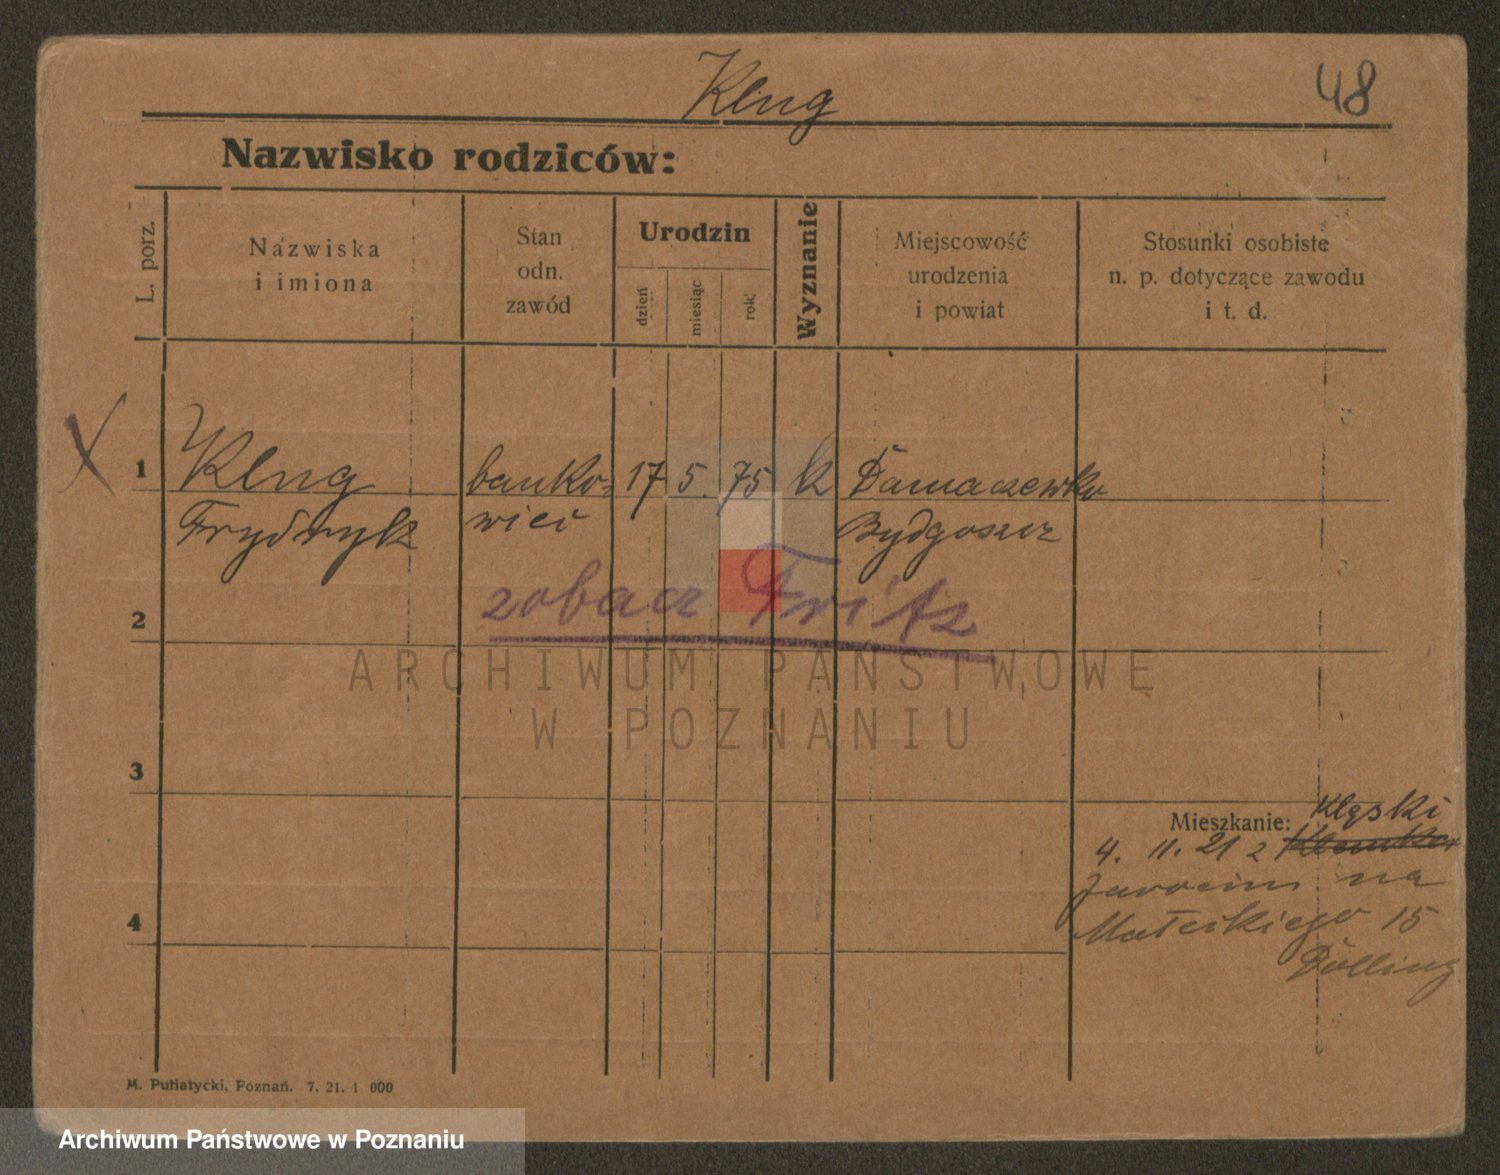 Klug
48
Nazwisko rodziców:
L. porz.
Nazwiska
i imiona
Stan
odn.
zawód
Urodzin
dzień
miesiąc
rok
Wyznanie
Miejscowość
urodzenia
i powiat
Stosunki osobiste
n. p. dotyczące zawodu
i t. d.
X
1
Klug
Frydryk
banko-
wiec
17 5. 75
k
Bydgoszcz
zobacz Fritz
2
ARCHIWUM PAŃSTWOWE
W POZNANIU
3
Mieszkanie:
4. 11. 21 z
Jarocin na
Małeckiego 15
Dölling
4
M. Putiatycki, Poznań. 7. 21. 1 000
Archiwum Państwowe w Poznaniu